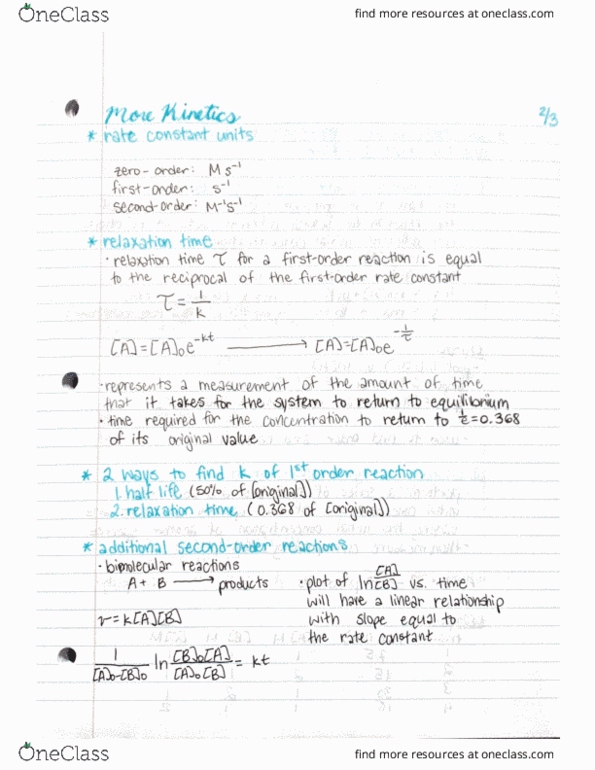 OneClass
find more resources at oneclass.com
More Kinetics
2/3
* rate constant units
zero-order: M s⁻¹
first-order: s⁻¹
second-order: M⁻¹s⁻¹
* relaxation time
· relaxation time τ for a first-order reaction is equal
to the reciprocal of the first-order rate constant
τ = 1/k
[A]=[A]₀e^-kt → [A]=[A]₀e^-1/τ
· represents a measurement of the amount of time
that it takes for the system to return to equilibrium
· time required for the concentration to return to 1/e=0.368
of its original value
* 2 ways to find k of 1st order reaction
1. half life (50% of [original])
2. relaxation time (0.368 of [original])
* additional second-order reactions
· bimolecular reactions
A + B → products
r=k[A][B]
· plot of ln [A]/[B] vs. time
will have a linear relationship
with slope equal to
the rate constant
1/([A]₀-[B]₀) ln [B]₀[A]/[A]₀[B] = kt
OneClass
find more resources at oneclass.com